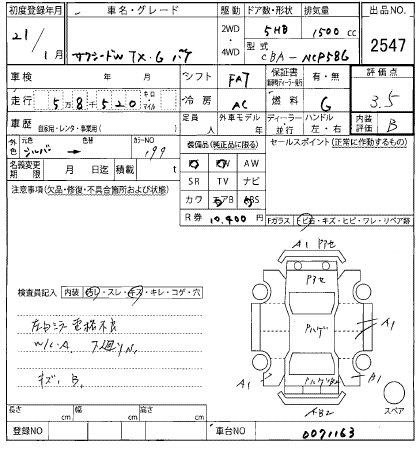 初度登録年月 車名・グレード 駆動 ドア数・形状 排気量 出品NO.
21/ 1月 TX・G 2WD・4WD 5HB 1500cc 2547
型式 CBA-NCP58G
車検 年 月 シフト FAT 保証書 有・無 評価点
走行 5万8千520 キロ・マイル 冷房 AC 燃料 G 3.5
車歴 自家用・レンタ・事業用( ) 定員 人 外車モデル 年 ディーラー・並行 ハンドル 左・右 内装評価 B
外色 元色 シルバー → 色替 カラーNO 199 装備品(純正品に限る) セールスポイント(正常に作動するもの)
名義変更期限 月 日迄 積載 t AW
SR TV ナビ
注意事項(欠品・修復・不具合箇所および状態) カワ エアB ABS
R券 10,400円 Fガラス トビ石・キズ・ヒビ・ワレ・リペア跡
A1 アセ
アセ
検査員記入 内装 ヨゴレ・スレ・キズ・キレ・コゲ・穴
左ドミラー電格不良
W/C・A. 下廻りN.
キズ、B,
A1
A1
A1 B1
AB2
スペア
長さ cm 幅 cm 高さ cm
登録NO 車台NO 0071163